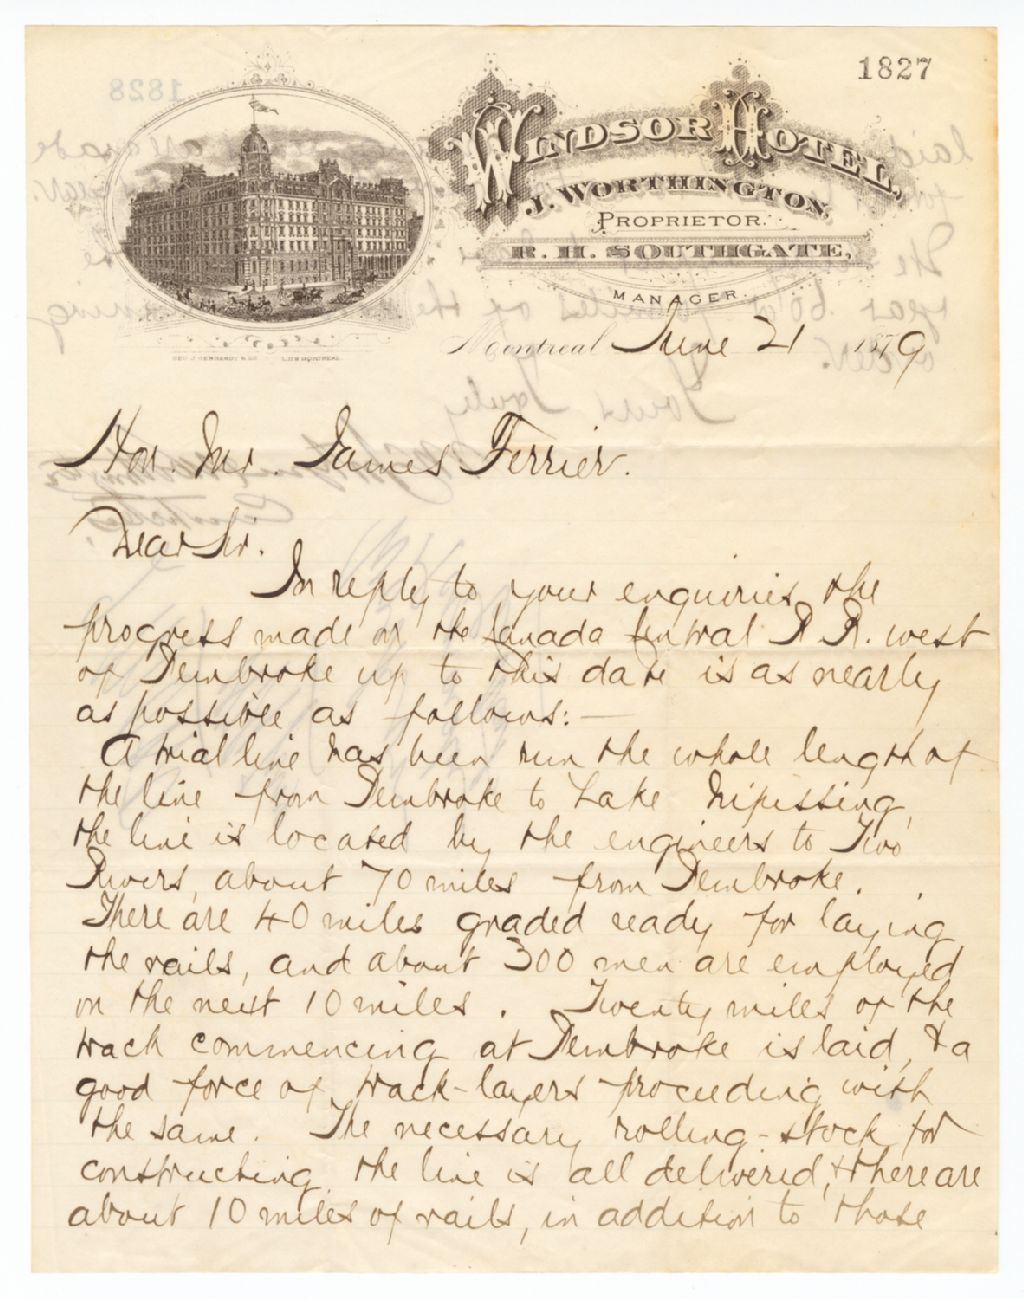 1827
WINDSOR HOTEL,
J. WORTHINGTON,
PROPRIETOR.
R. H. SOUTHGATE,
MANAGER.
Montreal June 21 1879
Hon. Mr. James Ferrier.
Dear Sir.
In reply to your enquiries, the
progress made on the Canada Central R R. west
of Pembroke up to this date is as nearly
as possible as follows:—
A trial line has been run the whole length of
the line from Pembroke to Lake Nipissing,
the line is located by the engineers to Two
Rivers, about 70 miles from Pembroke.
There are 40 miles graded ready for laying
the rails, and about 300 men are employed
on the next 10 miles. Twenty miles of the
track commencing at Pembroke is laid, & a
good force of track-layers proceeding with
the same. The necessary rolling-stock for
constructing the line is all delivered, & there are
about 10 miles of rails, in addition to those